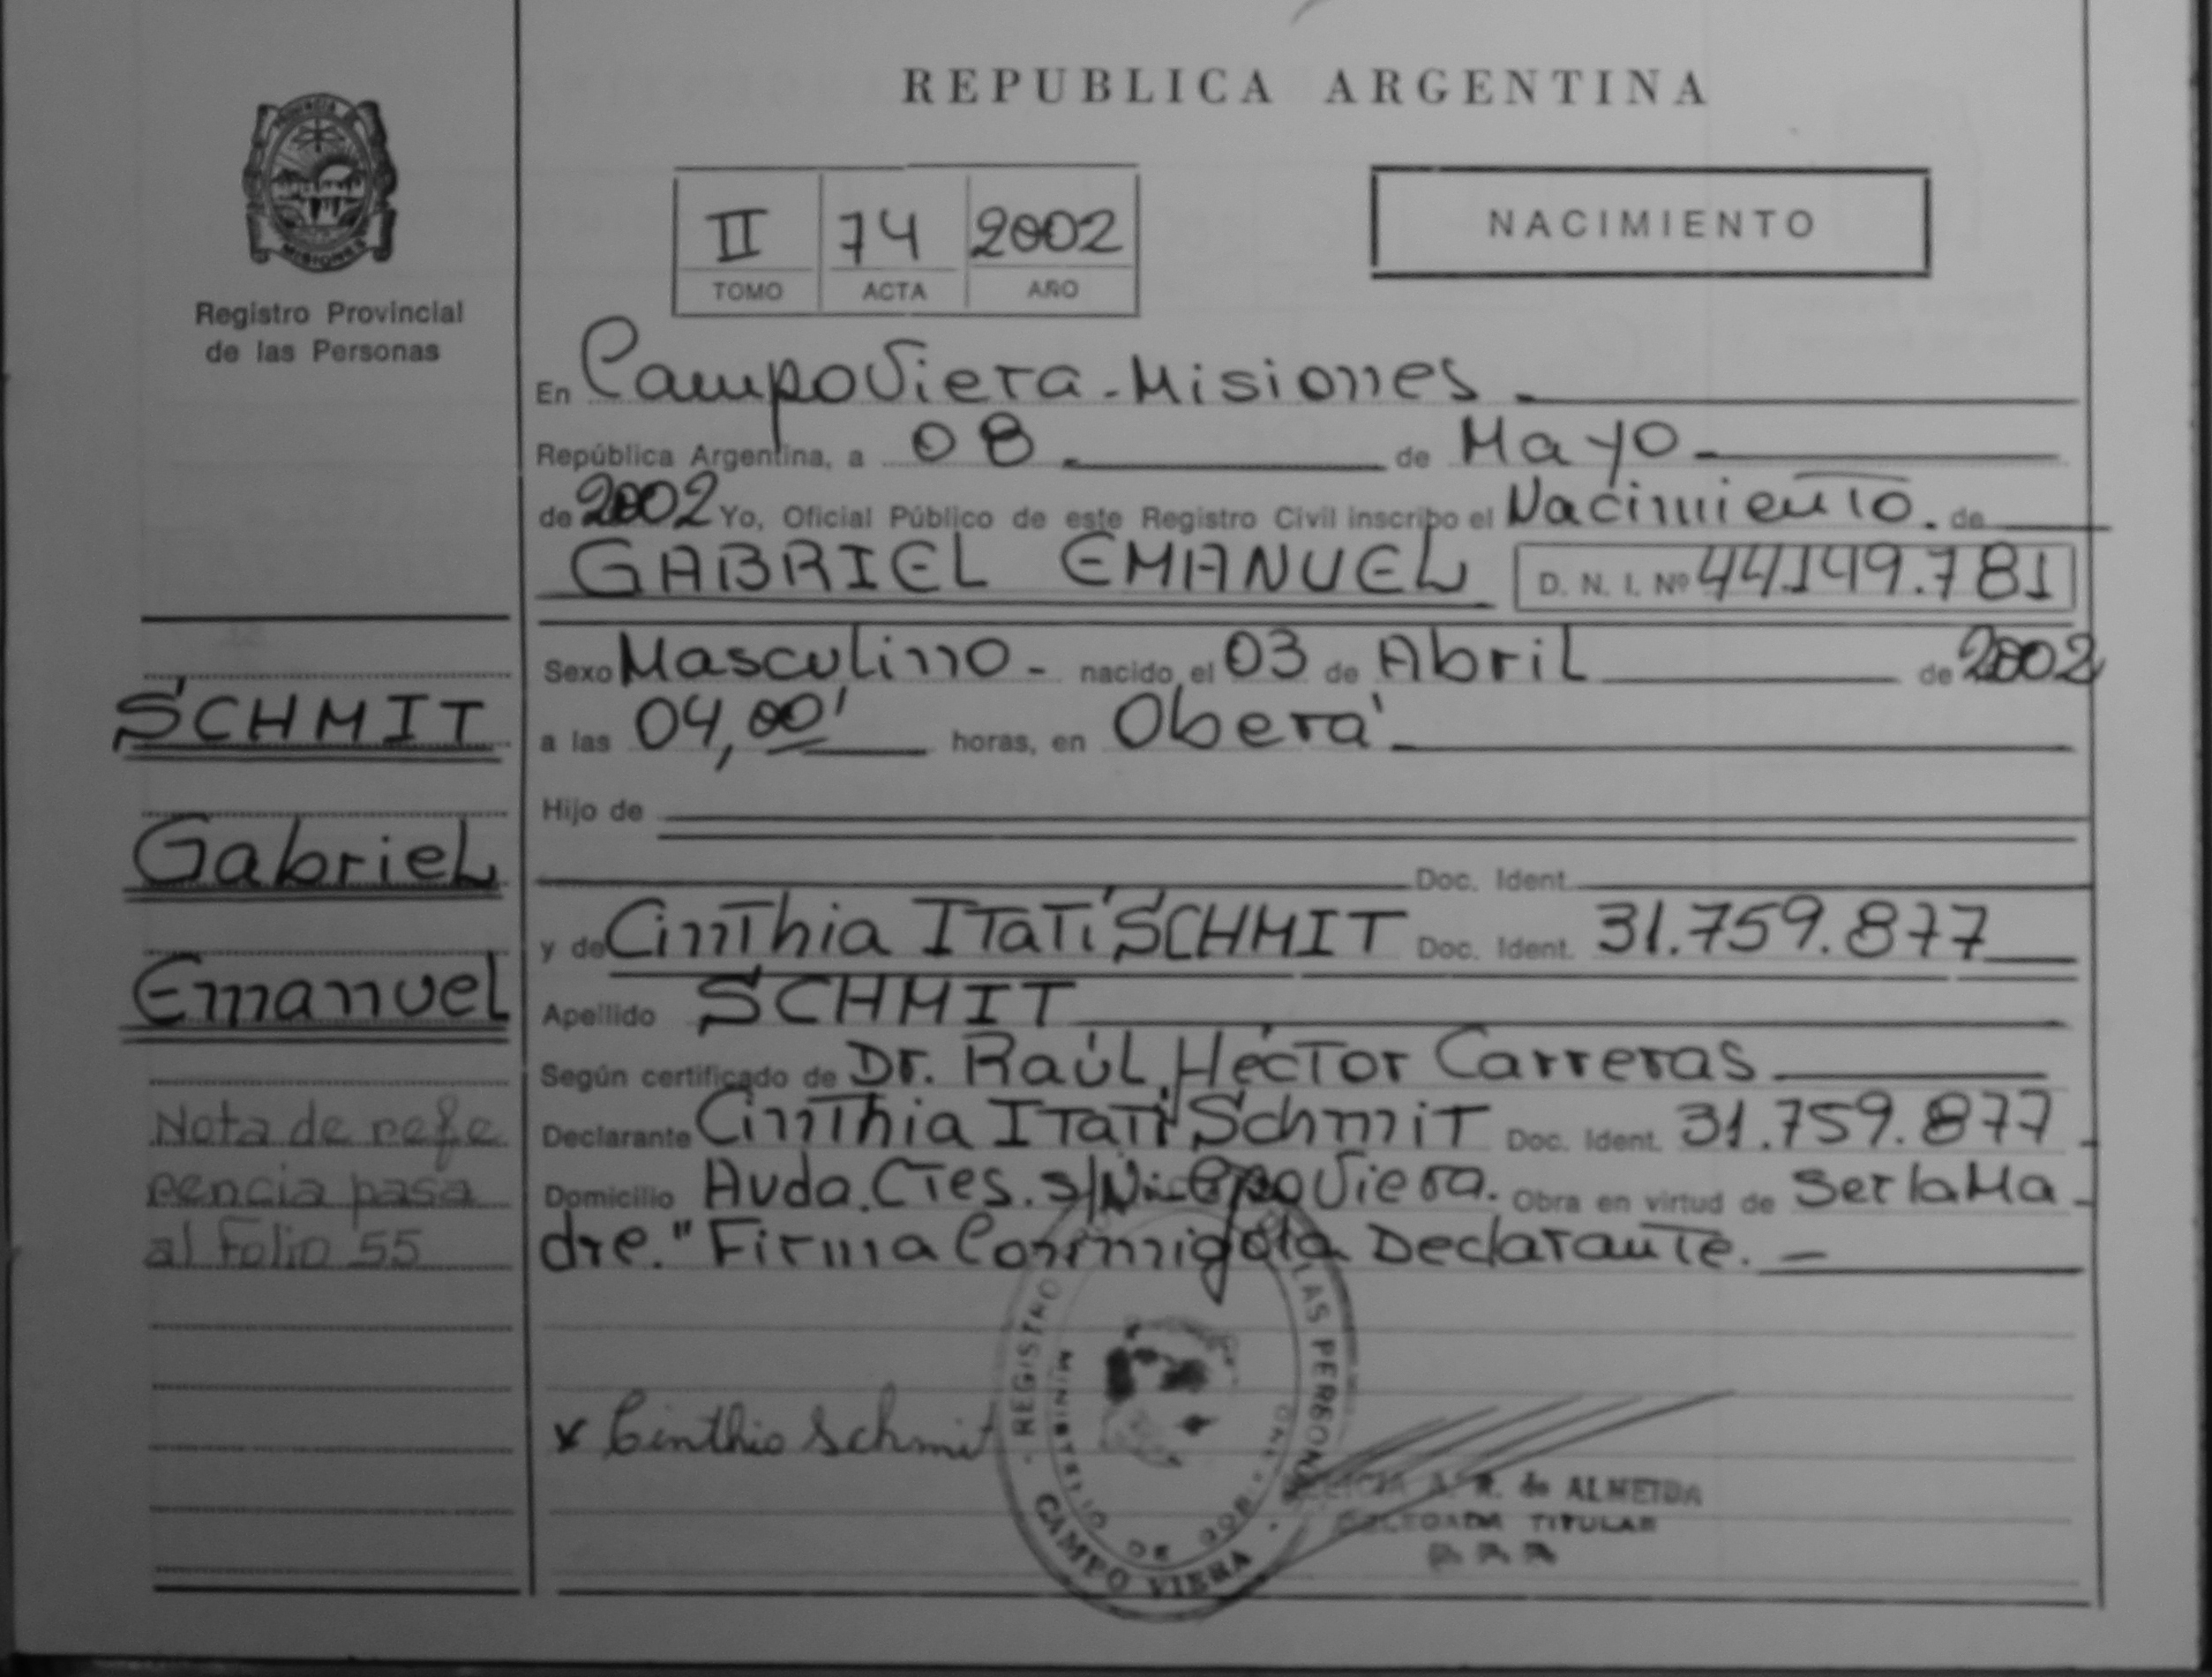 REPUBLICA ARGENTINA
PROVINCIA DE
MISIONES
Registro Provincial
de las Personas
II 74 2002
TOMO ACTA AÑO
NACIMIENTO
En Campo Viera - Misiones
República Argentina, a 08 de Mayo
de 2002 Yo, Oficial Público de este Registro Civil inscribo el Nacimiento. de
GABRIEL EMANUEL D. N. I. Nº 44149.781
Sexo Masculino - nacido el 03 de Abril de 2002
a las 04,00' horas, en Oberá
Hijo de
Doc. Ident.
y de Cinthia Itatí SCHMIT Doc. Ident. 31.759.877
Apellido SCHMIT
Según certificado de Dr. Raúl Héctor Carreras
Declarante Cinthia Itatí Schmit Doc. Ident. 31.759.877
Domicilio Avda. Ctes. s/N- Cpo Viera. Obra en virtud de Ser la Ma
dre." Firma Conmigo la Declarante. -
SCHMIT
Gabriel
Emanuel
Nota de refe
rencia pasa
al Folio 55
x Cinthia Schmit
REGISTRO LAS PERSONAS
MINISTERIO DE GOB.
CAMPO VIERA
A. R. de ALMEIDA
DELEGADA TITULAR